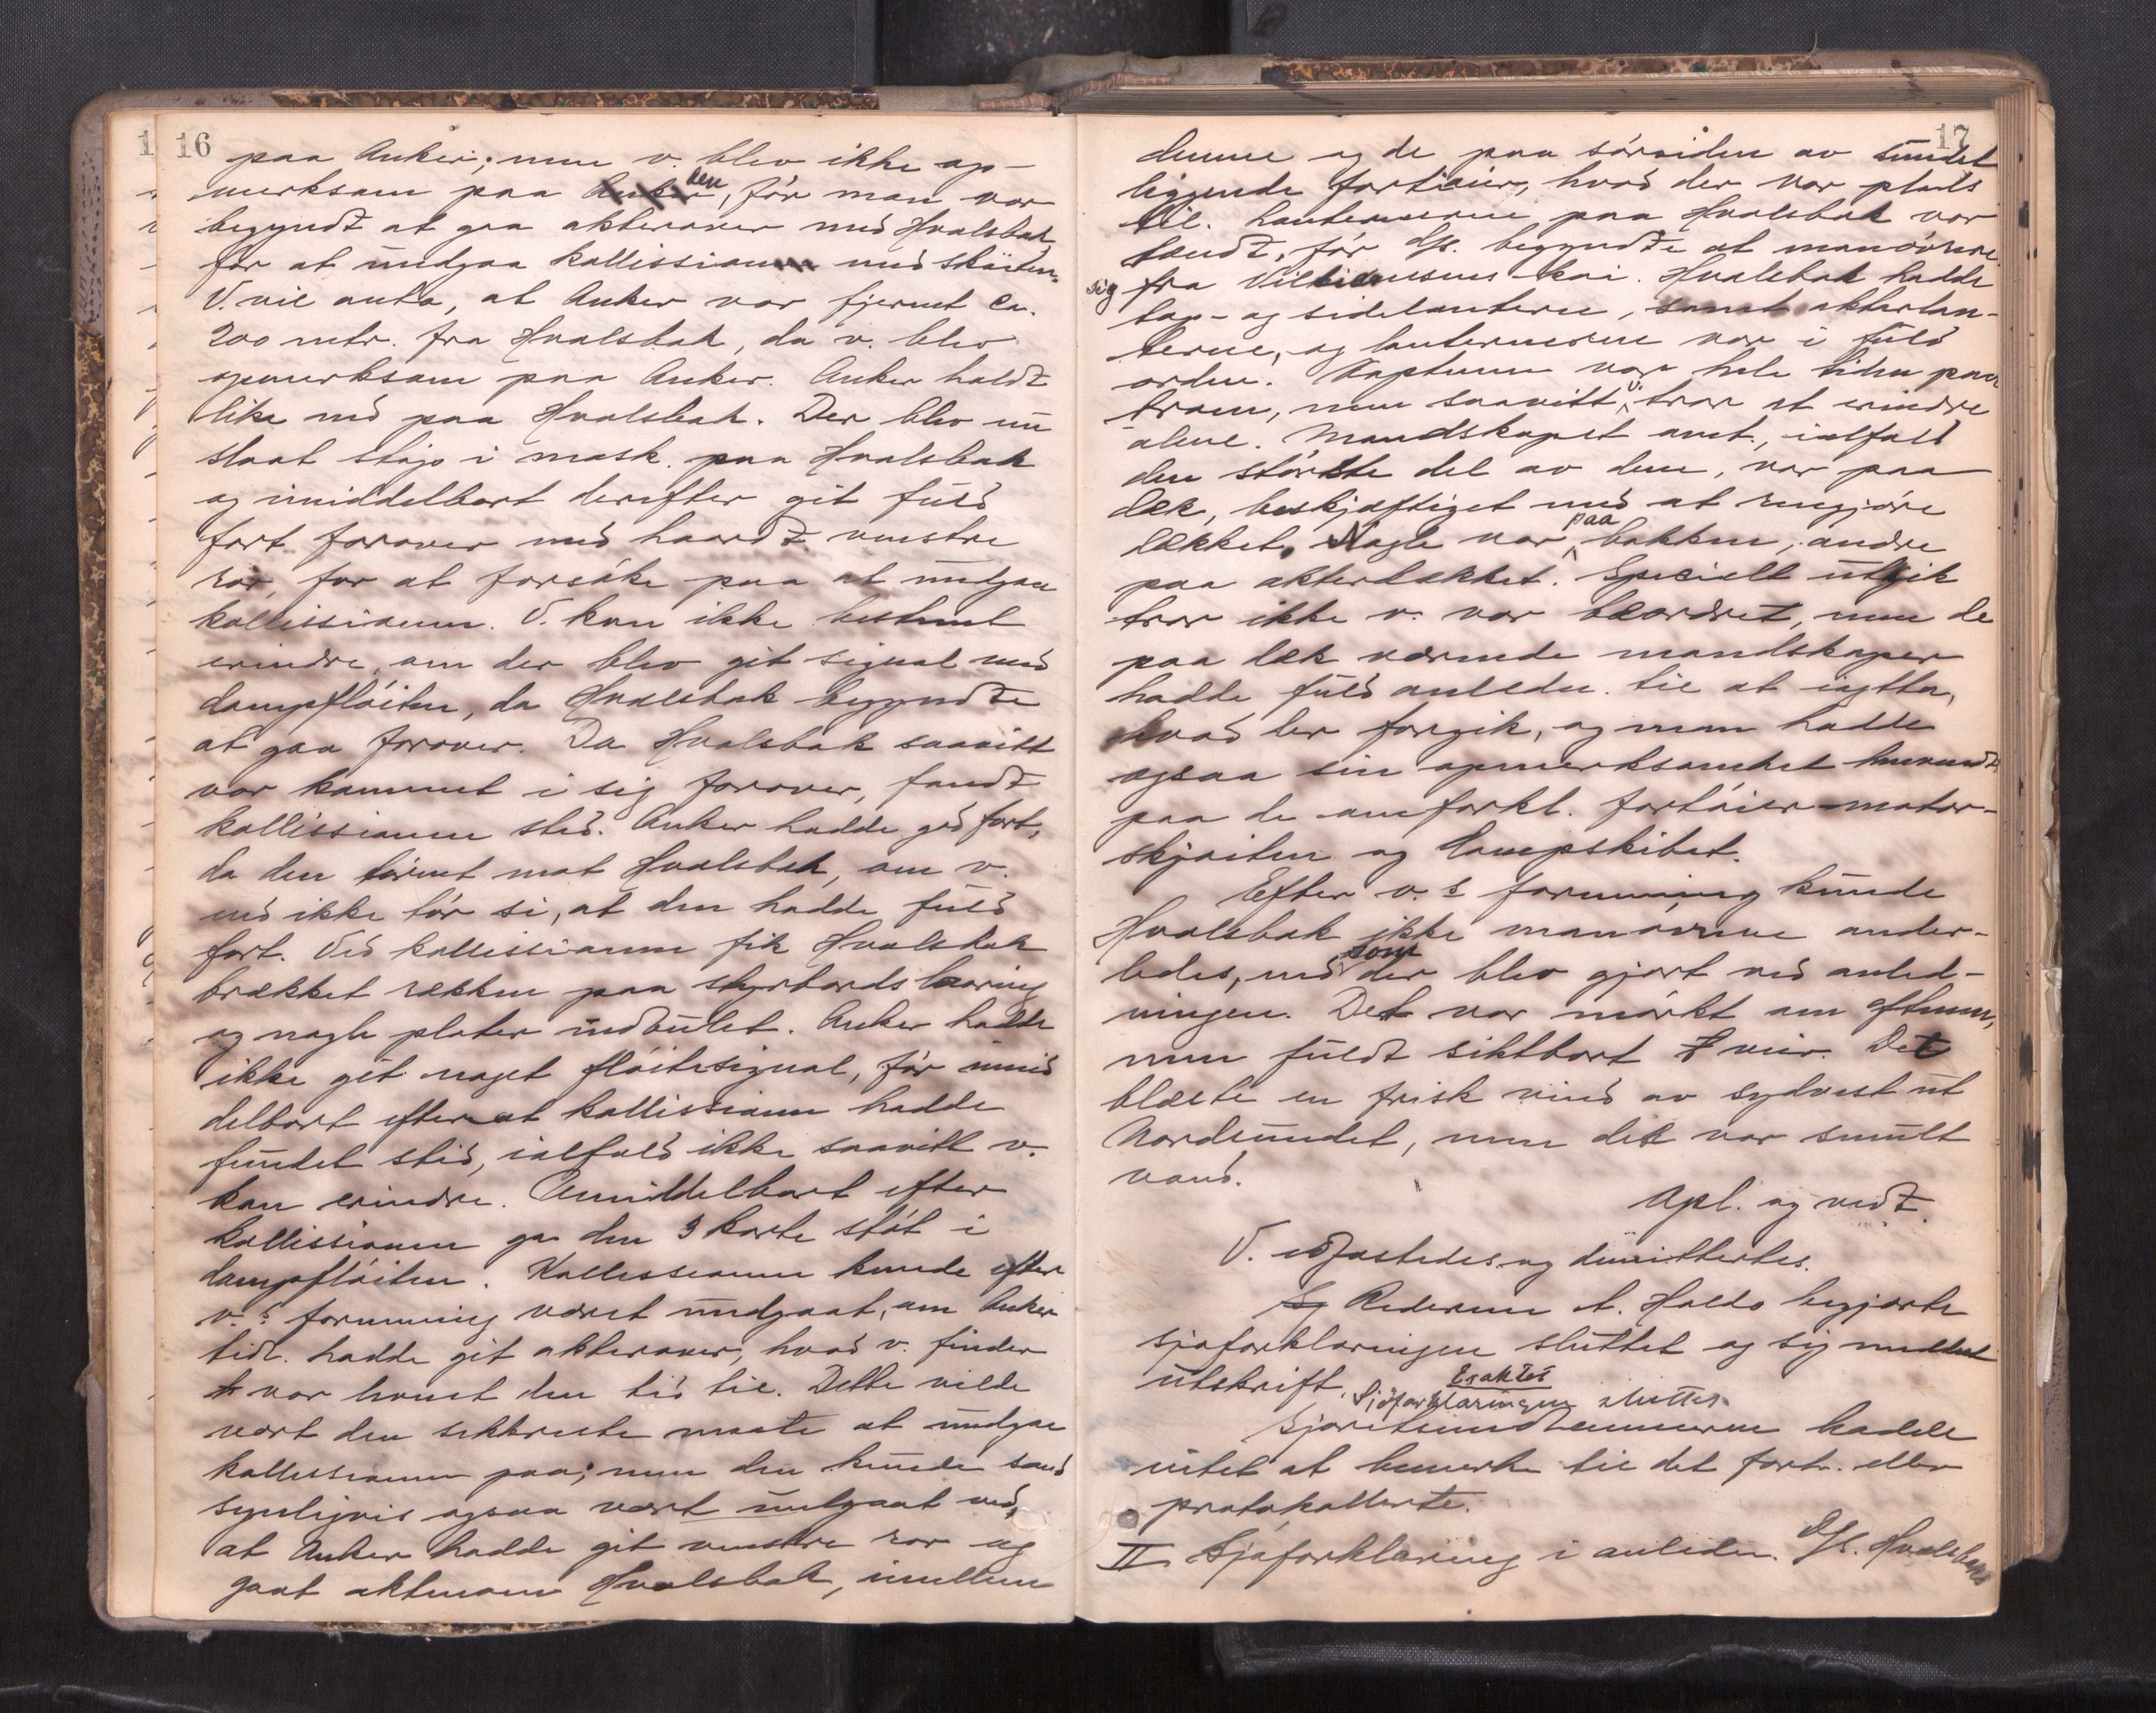 16
paa Anker; men v. blev ikke op-
merksam paa den, før man var
begyndt at gaa akterover med Hvalsbak
for at undgaa kollissionen med skøiten.
V. vil anta, at Anker var fjernet ca.
200 mtr. fra Hvalsbak, da v. blev
opmerksom paa Anker. Anker holdt
like ned paa Hvalsbak. Der blev nu
slaat stop i mask. paa Hvalsbak
og umiddelbart derefter git fuld
fart forover med haardt venstre
ror, for at forsøke paa at undgaa
kollissionen. V. kan ikke bestemt
erindre, om der blev git signal med
dampfløiten, da Hvalsbak begyndte
at gaa forover. Da Hvalsbak saavitt
var kommet i sig forover, fandt
kollissionen sted. Anker hadde god fart,
da den tørnet mot Hvalsbak, om v.
end ikke tør si, at den hadde fuld
fart. Ved kollissionen fik Hvalsbak
brækket rækken paa styrbords laaring
og nogle plater indbulet. Anker hadde
ikke git noget fløitesignal, før umid
delbart efter at kollissionen hadde
fundet sted, ialfald ikke saavitt v.
kan erindre. Umiddelbart efter
kollissionen ga den 3 korte støt i
dampfløiten. Kollissionen kunde efter
v.s formening været undgaat, om Anker
tidl. hadde git akterover, hvad v. finder
der var levnet den tid til. Dette vilde
vært den sikkreste maate at undgaa
kollissionen paa; men den kunde sand
synligvis ogsaa vært undgaat ved,
at Anker hadde git venstre ror og
gaat aktenom Hvalsbak, imellem
17
denne og de paa sørsiden av sundet
liggende fartøier, hvad der var plads
til. Lanternerne paa Hvalsbak var
tændt, før D/s. begyndte at manøvrere
sig fra Vilhelmsens kai. Hvalsbak hadde
top- og sidelanterne, samt akterlan-
terne, og lanternerne var i fuld
orden. Kapteinen var hele tiden paa
broen, men saavitt v. tror at erindre
alene. Mandskapet ant., ialfald
den største del av dem, var paa
dæk, beskjæftiget med at rengjøre
dækket. Nogle var paa bakken, andre
paa akterdækket. Specielt utkik
tror ikke v. var beordret, men de
paa dæk værende mandskaper
hadde fuld anledn. til at iagtta,
hvad der foregik, og man hadde
ogsaa sin opmerksomhet henvendt
paa de omforkl. fartøier – motor-
skjøiten og Dampskibet.
Efter v.s formening kunde
Hvalsbak ikke manøvrere ander-
ledes, end som der blev gjort ved anled-
ningen. Det var mørkt om aftenen,
men fuldt siktbart veir. Det
blæste en frisk vind av sydvest ut
Nordsundet, men det var smult
vand.
Opl. og vedt.
V. edfæstedes og dimittertes.
Rederne A. Holdø begjærte
sjøforklaringen sluttet og sig meddelt
utskrift.
Eraktet
Sjøforklaringen sluttes.
Sjøretsmedlemmerne hadde
intet at bemerke til det fort. eller
protokollerte.
II Sjøforklaring i anledn. D/s. Hvalsbaks